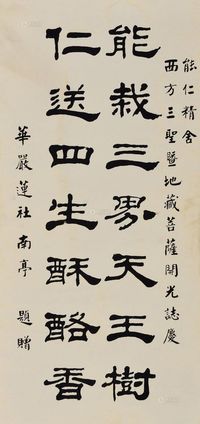 能仁精舍
西方三聖暨地藏菩薩開光誌慶
能栽三界天王樹
仁送四生酥酪香
華嚴蓮社南亭 題贈